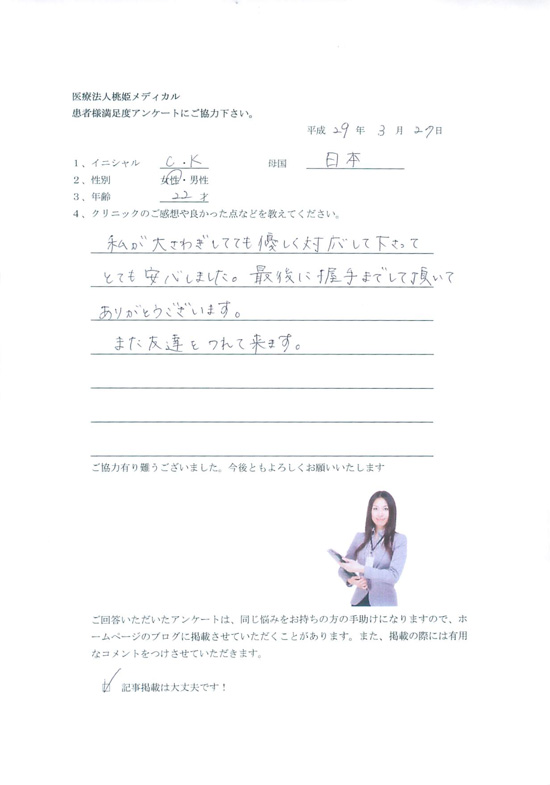 医療法人桃姫メディカル
患者様満足度アンケートにご協力下さい。
平成 29 年 3 月 27日
1、イニシャル C.K 母国 日本
2、性別 女性・男性
3、年齢 22 才
4、クリニックのご感想や良かった点などを教えてください。
私が大さわぎしてても優しく対応して下さって
とても安心しました。最後に握手までして頂いて
ありがとうございます。
また友達をつれて来ます。
ご協力有り難うございました。今後ともよろしくお願いいたします
ご回答いただいたアンケートは、同じ悩みをお持ちの方の手助けになりますので、ホ
ームページのブログに掲載させていただくことがあります。また、掲載の際には有用
なコメントをつけさせていただきます。
記事掲載は大丈夫です！